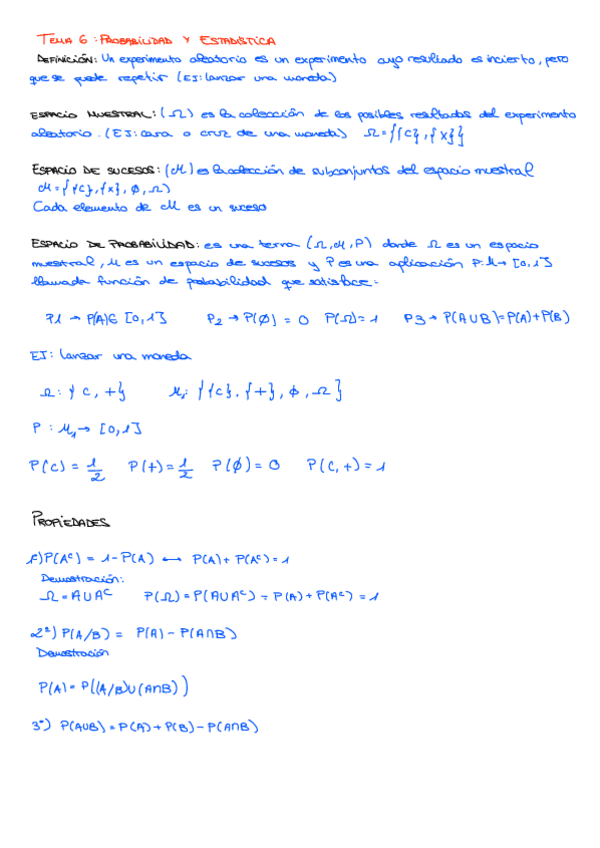 TEMA 6: PROBABILIDAD Y ESTADÍSTICA
DEFINICIÓN: Un experimento aleatorio es un experimento cuyo resultado es incierto, pero
que se puede repetir (EJ: lanzar una moneda)
ESPACIO MUESTRAL: (Ω) es la colección de los posibles resultados del experimento
aleatorio. (EJ: cara o cruz de una moneda) Ω = {{c}, {x}}
ESPACIO DE SUCESOS: (M) es la colección de subconjuntos del espacio muestral
M = { {c}, {x}, ∅, Ω)
Cada elemento de M es un suceso
ESPACIO DE PROBABILIDAD: es una terna (Ω, M, P) donde Ω es un espacio
muestral, M es un espacio de sucesos y P es una aplicación P: M → [0,1]
llamada función de probabilidad que satisface:
P1 → P(A) ∈ [0,1] P2 → P(∅) = 0 P(Ω) = 1 P3 → P(A∪B) = P(A) + P(B)
EJ: Lanzar una moneda
Ω: {c, +} M₁: {{c}. {+}, ∅, Ω}
P: M₁ → [0,1]
P(c) = 1/2 P(+) = 1/2 P(∅) = 0 P(c, +) = 1
PROPIEDADES
1º) P(Aᶜ) = 1 - P(A) ↔ P(A) + P(Aᶜ) = 1
Demostración:
Ω = A∪Aᶜ P(Ω) = P(A∪Aᶜ) = P(A) + P(Aᶜ) = 1
2º) P(A/B) = P(A) - P(A∩B)
Demostración
P(A) = P((A/B)∪(A∩B))
3º) P(A∪B) = P(A) + P(B) - P(A∩B)